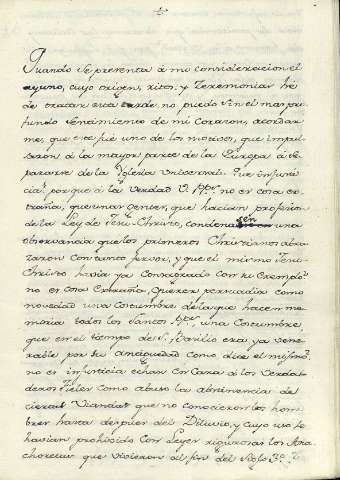 Quando se presenta á mi consideracion el
ayuno, cuyo origen, ritos, y Zeremonias he
de tratar esta tarde no puedo sin el mas pro
fundo sentimiento de mi corazon, acordar
me, que este fué uno de los motivos, que impu
sieron á la mayor parte de la Europa á se
pararse de la Iglesia Universal. Fue injusti
cia? porque á la verdad no es cosa ex
traña, que unas gentes, que hacian profesion
de la Ley de Jesu-Christo, condenasen una
observancia que los primeros Christianos abra
zaron con tanto fervor, y que el mismo Jesu-
Christo havia ya consagrado con su exemplo?
no es cosa extraña, querer persuadir como
novedad una costumbre de la que hacen me
moria todos los Santos PP.es, una costumbre,
que en el tiempo de S. Basilio era ya vene
rable por su antiguedad como dice el mismo?
no es injusticia echar en cara á los verda
deros fieles como abuso la abstinencia de
ciertas viandas que no conocieron los hom
bres hasta despues del Diluvio, y cuyo uso le
havian prohivido con Leyes rigurosas los Ana
choretas que vivieron al fin del Siglo 3º?